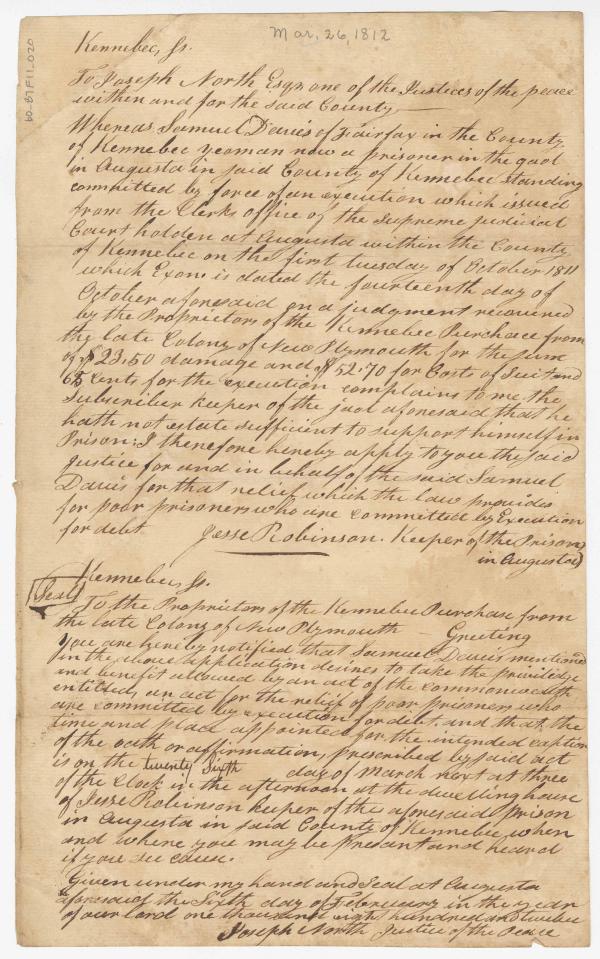 Mar. 26, 1812
60-87F11-020
Kennebec, Ss.
To Joseph North Esqr one of the Justices of the peace
within and for the said County —
Whereas Samuel Davis of Fairfax in the County
of Kennebec yeoman now a prisoner in the gaol
in Augusta in said County of Kennebec standing
committed by force of an execution which issued
from the Clerks office of the Supreme judicial
Court holden at Augusta within the County
of Kennebec on the first tuesday of October 1811
which Exon. is dated the fourteenth day of
October aforesaid on a judgment recovered
by the Proprietors of the Kennebec Purchase from
the late Colony of New Plymouth for the sum
of $23.50 damage and $52.70 for Costs of Suit and
65 Cents for the execution complains to me, the
Subscriber keeper of the jaol aforesaid that he
hath not estate sufficient to support himself in
Prison: I therefore hereby apply to you the said
justice for and in behalf of the said Samuel
Davis for that relief which the law provides
for poor prisoners who are committed by Execution
for debt. Jesse Robinson. Keeper of the Prison
in Augusta
Kennebec, Ss.
Seal
To the Proprietors of the Kennebec Purchase from
the late Colony of New Plymouth — Greeting
You are hereby notified that Samuel Davis mentioned
in the above application desires to take the priviledge
and benefit allowed by an act of the commonwealth
entitled, an act for the relief of poor prisoners who
are committed by execution for debt. and that the
time and place appointed for the intended caption
of the oath or affirmation, prescribed by said act
is on the twenty Sixth day of March next at three
of the Clock in the afternoon at the dwelling house
of Jesse Robinson keeper of the aforesaid prison
in Augusta in said County of Kennebec, when
and where you may be present and heard
if you see cause.
Given under my hand and Seal at Augusta
aforesaid the Sixth day of February in the year
of our lord one thousand eight hundred and twelve
Joseph North Justice of the Peace